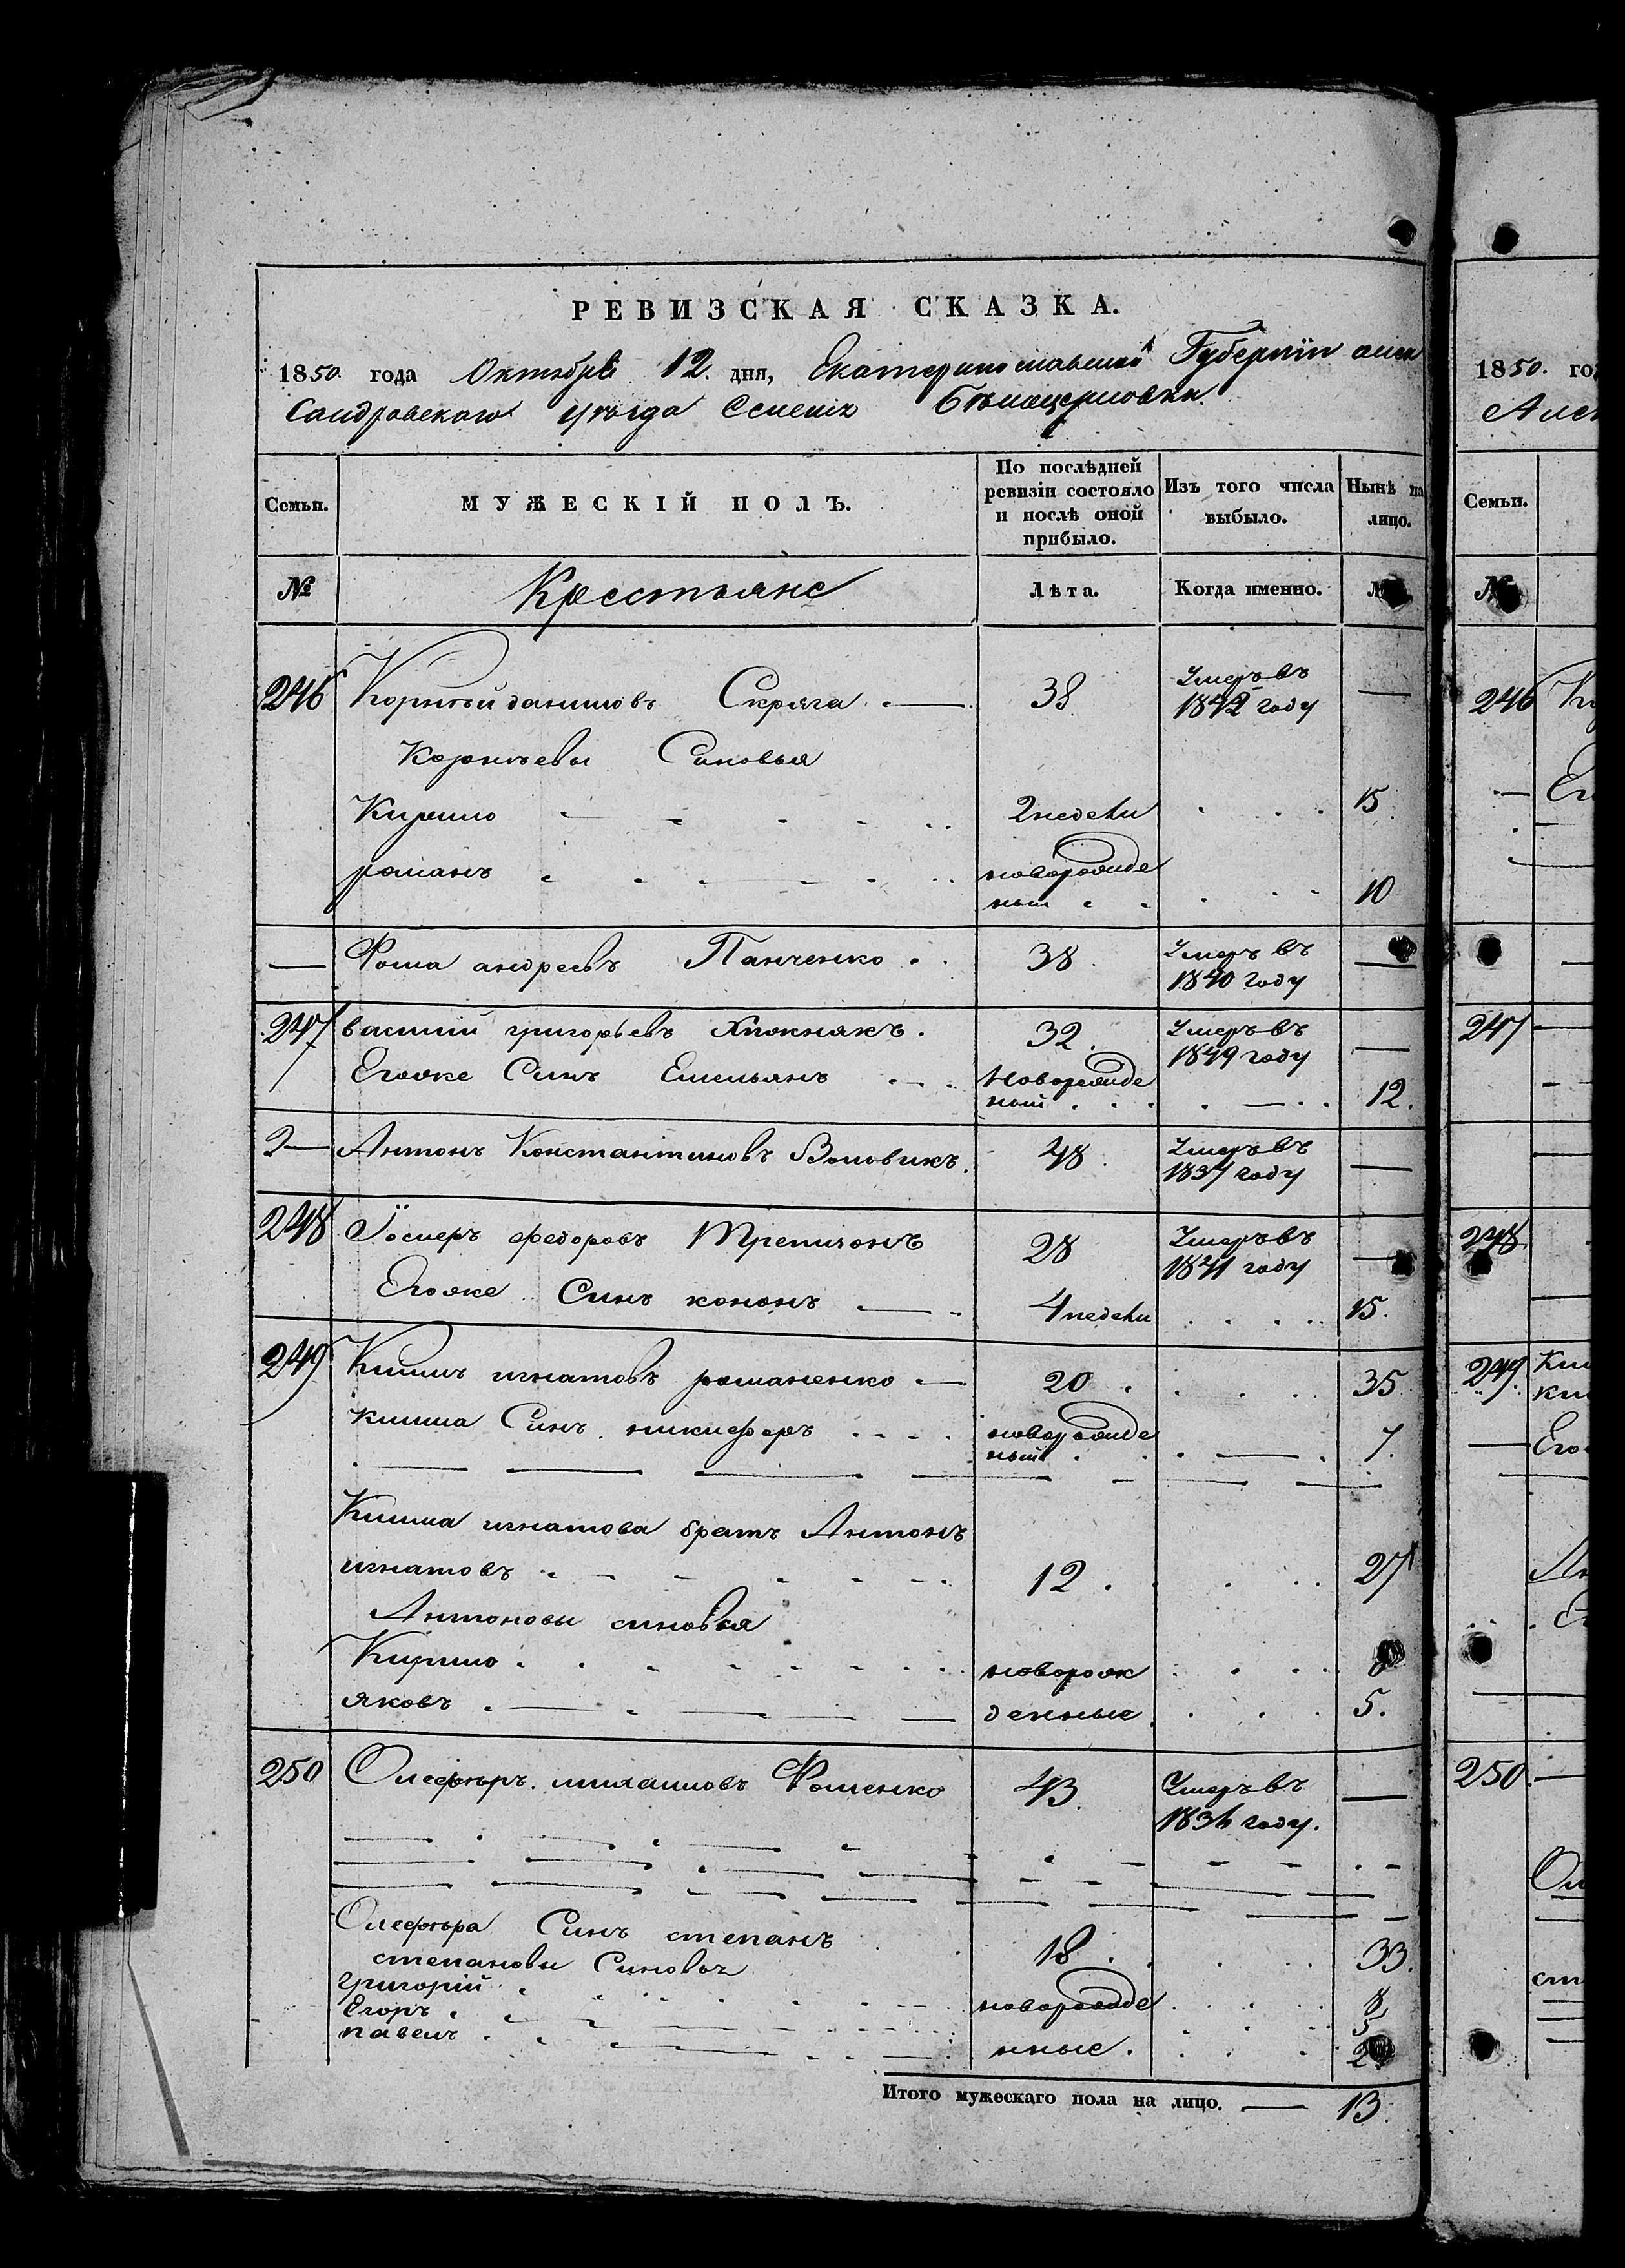 РЕВИЗСКАЯ СКАЗКА.
1850. года Октября 12. дня, Екатеринославской Губернии алек
сандровскаго уѣзда Селенія Бѣлоцерковки
Семьи. МУЖЕСКІЙ ПОЛЪ. По послѣдней ревизіи состояло и послѣ оной прибыло. Изъ того числа выбыло. Нынѣ на лицо.
№ Крестьяне Лѣта. Когда именно.
246 Корнѣй даниловъ Скряга 38 Умеръ въ 1842 году —
Корнѣевы Синовья
Кирило 2 недели 15
романъ новорожденый 10
— Фома андреевъ Панченко 38 Умеръ въ 1840 году —
247 василій григорьевъ 32. Умеръ въ 1849 году —
Егоже Синъ Емельянъ новорожденый 12.
2— Антонъ Константиновъ Воловикъ. 48 Умеръ въ 1837 году —
248 федоровъ 28 Умеръ въ 1841 году —
Егоже Синъ кононъ 4 недели 15.
249 Климъ игнатовъ романенко 20 35
клима Синъ никифоръ новорожденый 7.
Клима игнатова братъ Антонъ
игнатовъ 12. 27
Антоновы синовья
Кирило новорож
яковъ денные 5.
250 Олефѣръ михаиловъ Фоменко 43. Умеръ въ 1836 году. —
Олефѣра Синъ степанъ 18. 33.
степановы Синовья
григорій новорожде 8
Егоръ 5
павелъ нные. 2
Итого мужескаго пола на лицо. — 13.
1850. го
Алек
Семьи.
№
246
Ег
247
248
249 Кли
кли
Его
Ан
250
Ол
сте